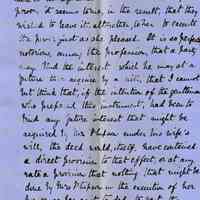 prop. It seems to me, in the result, that they
wished to leave it altogether to her to execute
the power just as she pleased. It is so perfectly
notorious among the profession, that a party
may bind the interest which he may at a
future time acquire by a will, that I cannot
but think that, if the intention of the gentleman
who prepared this instrument, had been to
bind any future interest that might be
acquired by Mrs Phipson under his wife's
will, the deed would, itself, have contained
a direct provision to that effect, or at any
rate a provision that nothing that might be
done by Mrs Phipson in the execution of her